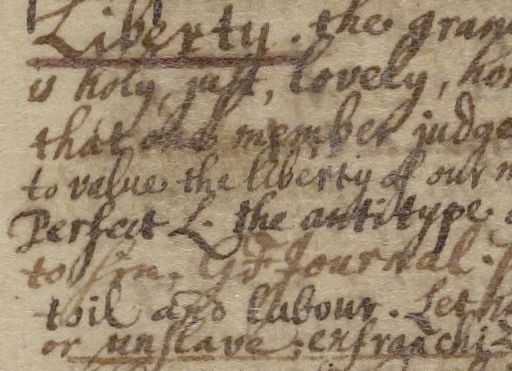 Liberty. the gran
is holy, just, lovely, hon
that one member judge
to value the liberty of our m
Perfect L. the antitype
to sin. Journal.
toil and labour. Let
or unslave; enfranchi